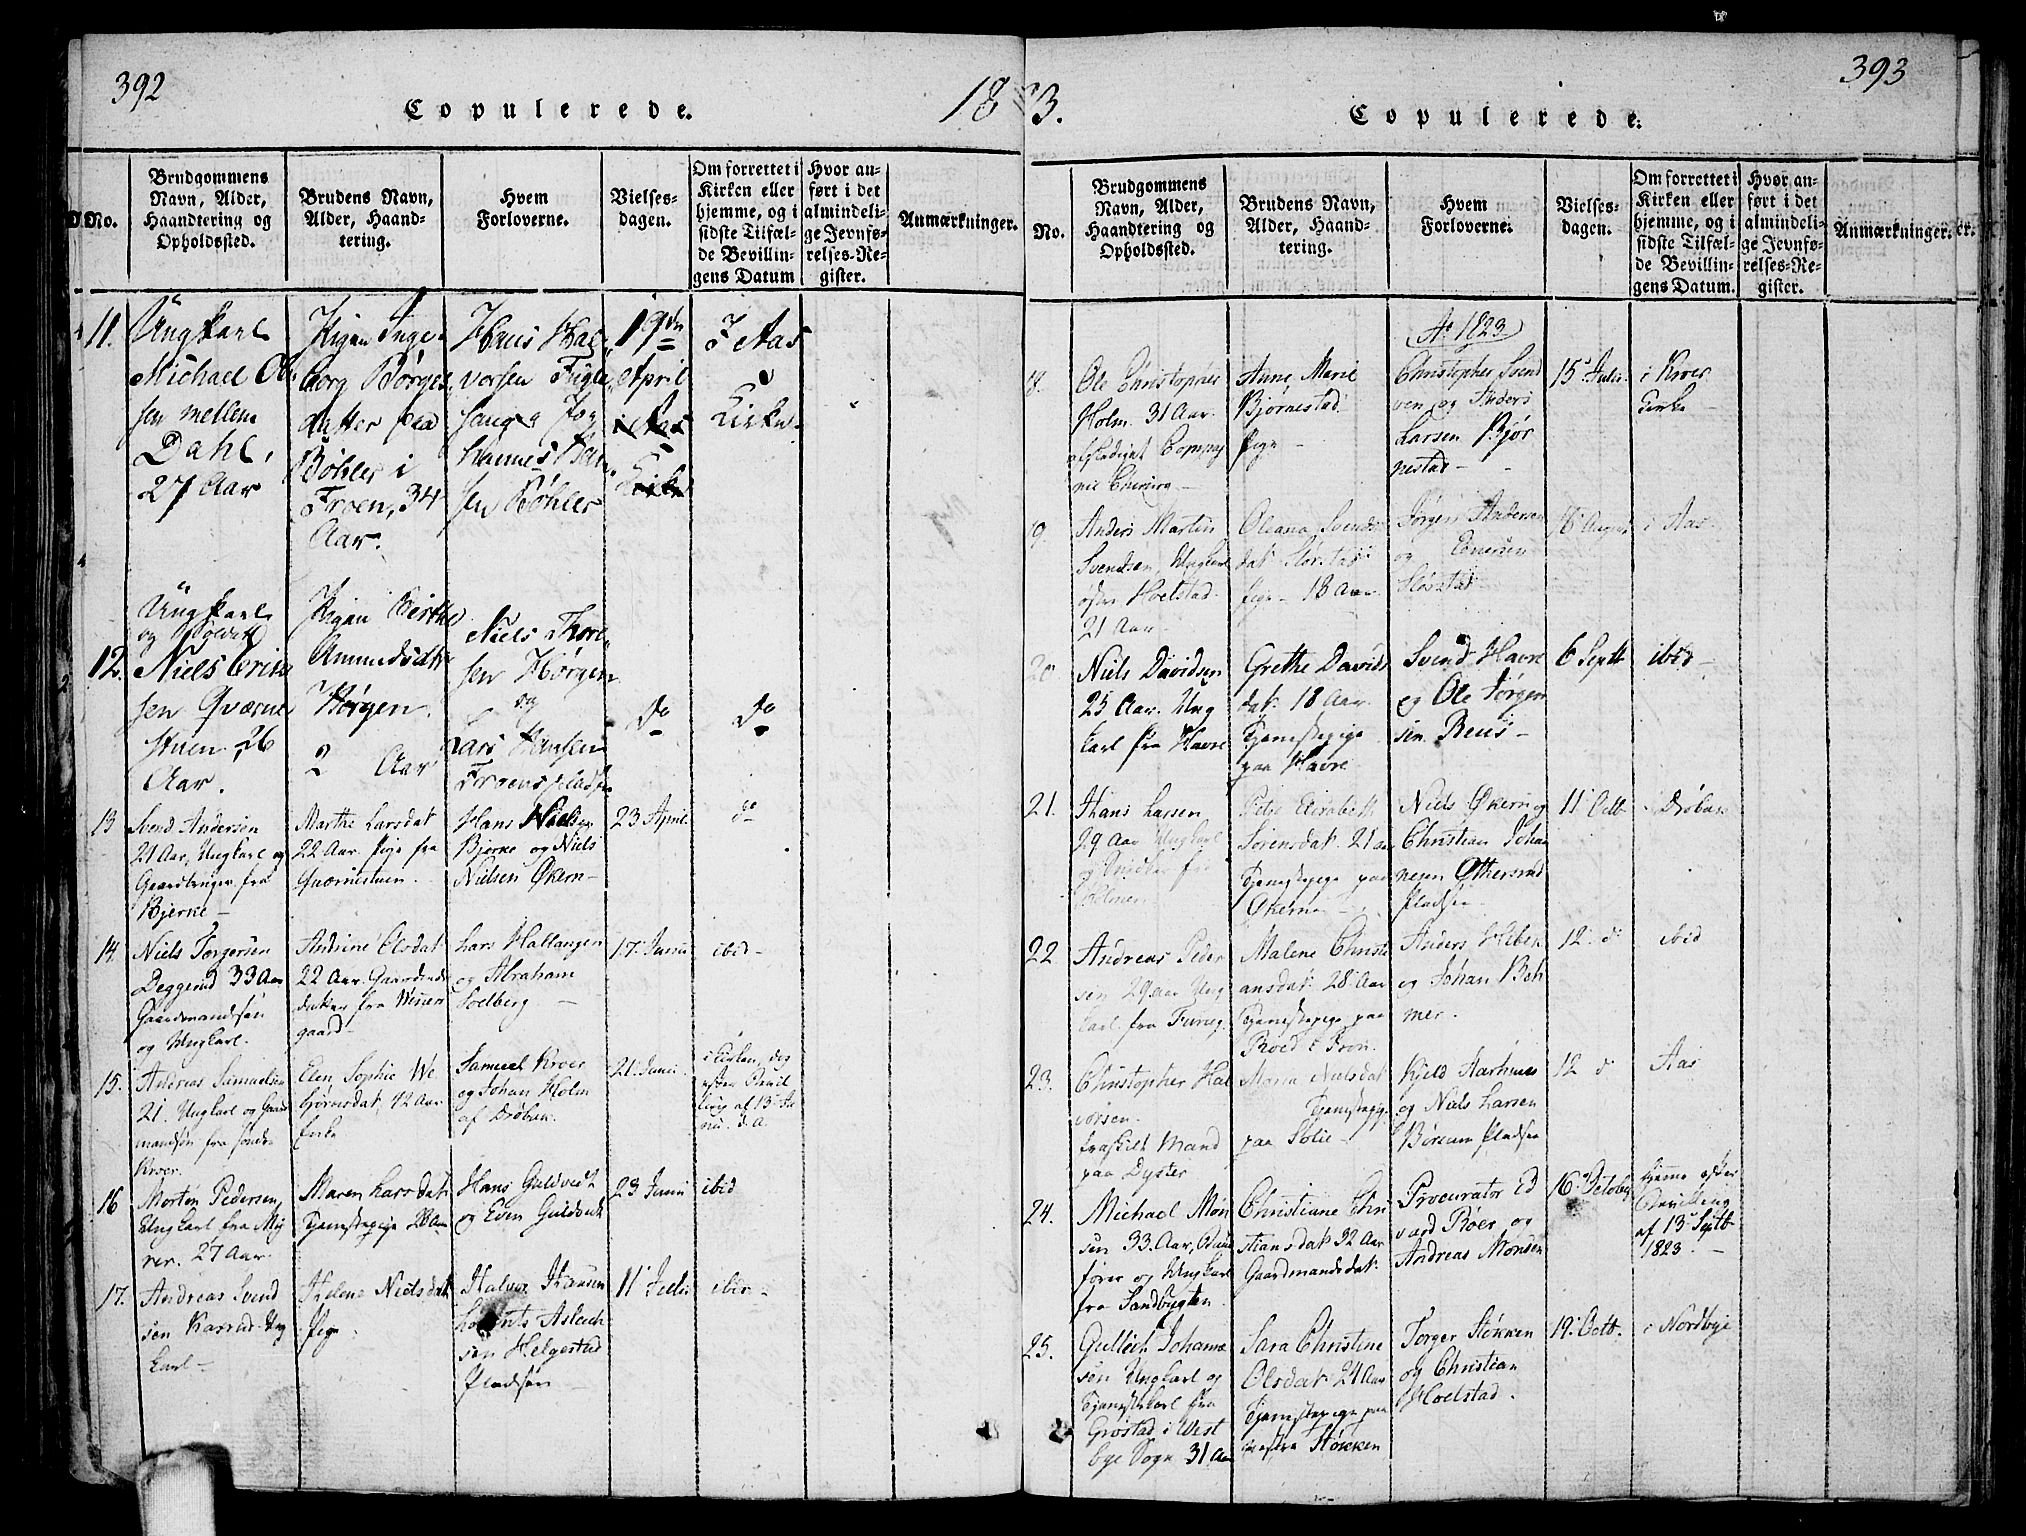 392
Copulerede.
1823.
No.
Brudgommens
Navn, Alder,
Haandtering og
Opholdssted.
Brudens Navn,
Alder, Haand-
tering.
Hvem
Forloverne.
Vielses-
dagen.
Om forrettet i
Kirken eller
hjemme, og i
sidste Tilfæl-
de Bevillin-
gens Datum
Hvor an-
ført i det
almindeli-
ge Jevnfø-
relses-Re-
gister.
Anmærkninger.
11.
Ungkarl
Michael Ol
sen mellem
Dahl,
27 Aar
Pigen Inge-
borg Børges
datter fra
Bøhler i
Froen, 34
Aar.
Hans Hal-
vorsen Fugle
sang og Jo
hannes
sen Bøhler
19de
April
i Aas
Kirke
I Aas
Kirke.
12.
Ungkarl
og
Niels Erik
sen Qværne
stuen 26
Aar.
Pigen Berthe
Amundsdtr
Hørgen.
2 Aar
Niels Thore
sen Hørgen
og
Lars Hansen
Froens pladsen
do
do
13
Svend Andersen
21 Aar, Ungkarl og
Gaardbruger fra
Bjerke-
Marthe Larsdat
22 Aar Pige fra
Quærnestuen.
Hans Nielsen
Bjerke og Niels
Nielsen Økern-
23 April
do
14.
Niels Torgersen
Deggerud 33 Aar
Gaardmandsøn
og Ungkarl.
Andrine Olsdat
22 Aar. Gaardmands
datter fra Weier
gaard-
Lars Hallangen
og Abraham
Solberg -
17. Junii
ibid-
15.
Andreas Samuelsen
21. Ungkarl og Gaard
mandsøn fra søndre
Kroer.
Elen Sophie We
bjørnsdat, 42 Aar
Enke
Samuel Kroer
og Johan Holm
af Drøbak.
21. Junii.
i Kirken, dog
efter Bevil
ling af 13 Ja
nu. d.A.
16
Morten Pedersen,
Ungkarl fra My
rer. 27 Aar.
Maren Larsdat
Tjenestepige 28 Aar
Hans Guldvedt
og Even Guldvedt
23 Junii
ibid
17.
Andreas Svend
sen Karrud Ung
karl-
Helene Nielsdat
Pige.
Halvor Hansen
Lorents Aslach
sen Helgestad
Pladsen
11 Julii
ibid-
393
Copulerede.
No.
Brudgommens
Navn, Alder,
Haandtering og
Opholdssted.
Brudens Navn,
Alder, Haand-
tering.
Hvem
Forloverne.
Vielses-
dagen.
Om forrettet i
Kirken eller
hjemme, og i
sidste Tilfæl-
de Bevillin-
gens Datum.
Hvor an-
ført i det
almindeli-
ge Jevnfø-
relses-Re-
gister.
Anmærkninger.
Ao 1823
18.
Ole Christopher
Holm. 31 Aar.
afskediget Compag
nie Chirurg -
Anne Marie
Bjørnestad
Pige -
Christopher Svend
sen og Anders
Larsen Bjør
nestad-
15 Julii
i Kroer
Kirke-
19.
Anders Martin
Svendsen, Ungkarl
Hoelstad
21 Aar-
Oleana Svends
dat Slorstad
Pige- 18 Aar
Jørgen Andersen
og
Slorstad
18 August
i Aas
20
Niels Davidsen
25 Aar. Ung
karl fra Havre
Grethe Davids
dat. 18 Aar.
Tjenestepige
paa Havre
Svend Havre
og Ole Jørgen
sen Reiis-
6 Septb
ibid-
21.
Hans Larsen
29 Aar Ungkarl
og Snidker fra
Sørensdat. 21 aar
Tjenestepige paa
Økerne-
Niels Økern og
Christian Johan
nesen
Pladsen-
11 Octb
i Drøbak
22
Andreas Peder
sen 29 aar Ung
karl fra
Malene Christi
ansdat. 28 Aar
Tjenestepige paa
Roed i Fron.
Anders Hebek
og Johan Boh
mer.
12 do
ibid
23.
Christopher Hal
vorsen.
fraskilt Mand
paa Dyster
Maria Nielsdat
Tjenestepige
paa Solie-
Kield Aarhuus
og Niels Larsen
Børsum Pladsen
12 do
Aas
24.
Michael Mon
sen 33. Aar,
fører og Ungkarl
fra Sandbugten.
Christiane Chri
stiansdat 32 Aar
Gaardmandsdat.
Procurator Ed
vard Røer og
Andreas Monsen
16 October
hjemme efter
Bevilling
af 13 Septb
1823.-
25.
Gullich Johanne
sen Ungkarl og
Tjenestekarl fra
Grøstad i West
bye Sogn 31 Aar
Sara Christine
Olsdat. 24 Aar
Tjenestepige paa
Støkken
Torger Støkken
og Christian
Hoelstad.
19. Octb.
i Nordbye